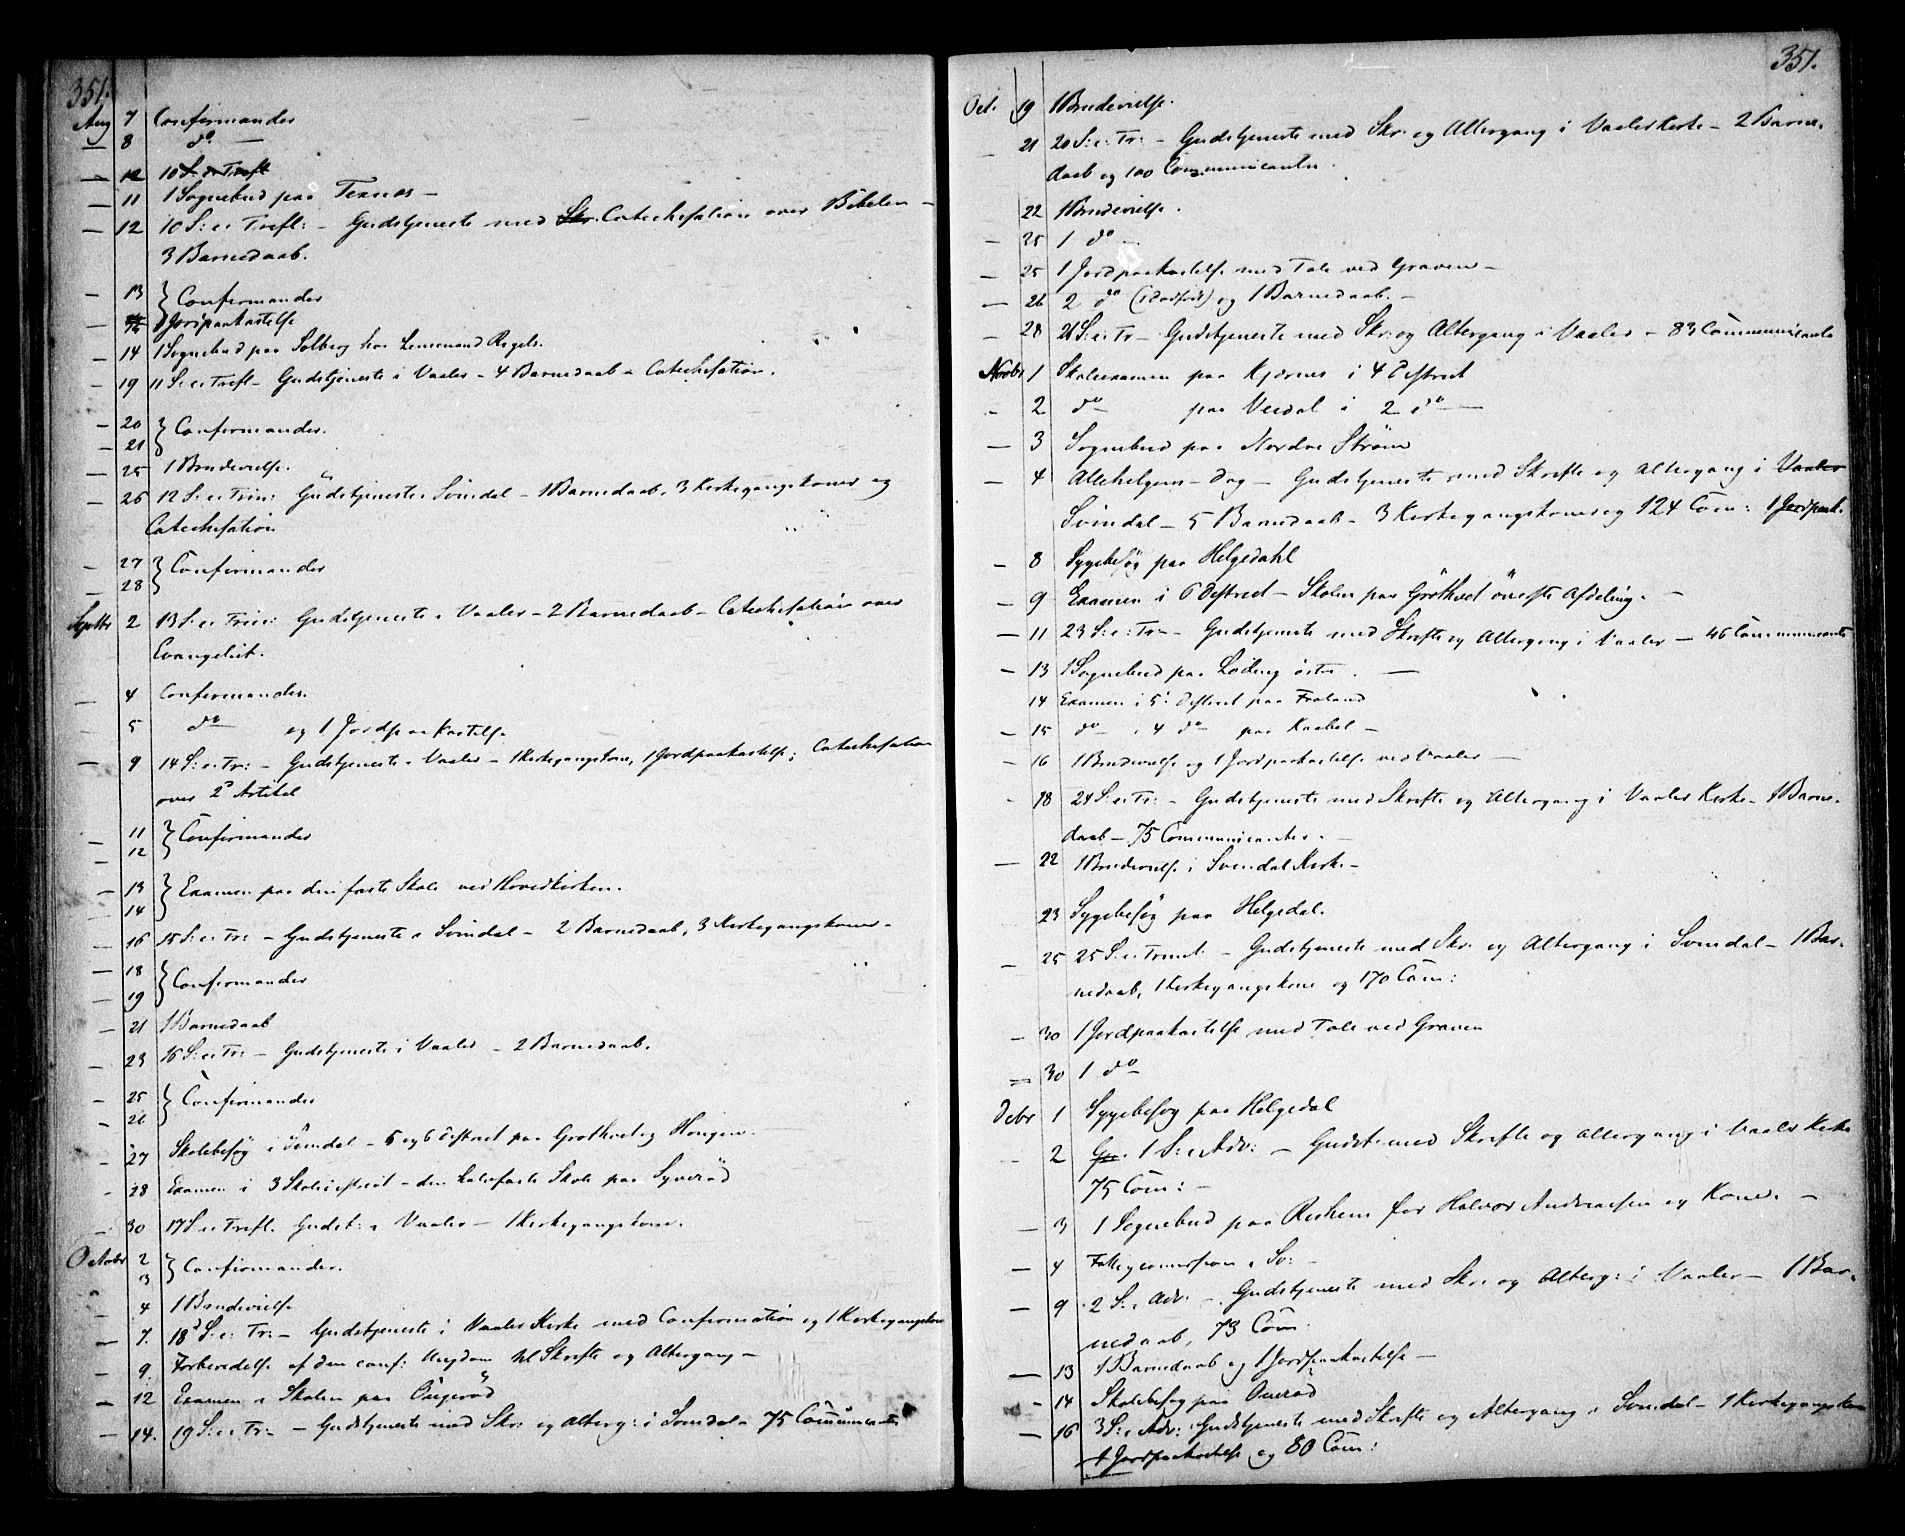 351.
Aug 7 Confirmander
— 8 do —
— 12 10 S. e. Treft
— 11 1 Sognebud paa Texnes —
— 12 10 S: e: Treft: — Gudstjeneste med Skr. Catechesation over Bibelen —
3 Barnedaab.
— 13 } Confirmander
— Jordpaakastelse
— 14 1 Sognebud paa Solberg hos Lensmand Regels.
— 19 11 S: e: Treft — Gudstjeneste i Vaaler — 4 Barnedaab — Catechesation.
— 20 } Confirmander.
— 21
— 25 1 Brudevielse.
— 26 12 S: e: Trin: Gudstjeneste i Svindal — 1 Barnedaab, 3 Kirkegangskoner og
Catechesation
— 27 } Confirmander
— 28
Septbr 2 13 S: e: Trin: Gudstjeneste i Vaaler — 2 Barnedaab — Catechesation over
Evangeliet.
— 4 Confirmander.
5 do og 1 Jordpaakastelse
— 9 14 S: e: Tr: — Gudstjeneste i Vaaler — 1 Kirkegangskone, 1 Jordpaakastelse; Catechesation
over 2den Artikel
— 11 } Confirmander
— 12
— 13 } Examen paa den faste Skole ved Hovedkirken.
— 14
— 16 15 S: e: Tr: — Gudstjeneste i Svindal — 2 Barnedaab, 3 Kirkegangskoner —
— 18 } Confirmander
— 19
— 21 1 Barnedaab
— 23 16 S: e: Tr: — Gudstjeneste i Vaaler — 2 Barnedaab.
— 25 } Confirmander
— 26
— 27 Skolebesøg i Svindal — 5 og 6 District paa Grøthvet og Hougen.
— 28 Examen i 3 Skoledistrict — den halvfaste Skole paa Syverød
— 30 17 S: e: Treft. Gudst: i Vaaler — 1 Kirkegangskone.
October 2 } Confirmander.
3
4 1 Brudevielse
— 7. 18d S: e: Tr: — Gudstjeneste i Vaaler Kirke med Confirmation og 1 Kirkegangskone
— 9. Forberedelse af den conf: Ungdom til Skrifte og Altergang —
— 12 Examen i Skolen paa Augerød
— 14. 19 S: e: Tr: — Gudstjeneste med Skr: og Alterg: i Svindal — 75 Communicanter
351.
Oct. 19 1 Brudevielse.
— 21 20 S: e: Tr: — Gudstjeneste med Skr: og Altergang i Vaaler Kirke — 2 Barne-
daab og 100 Communicanter.
22 1 Brudevielse.
— 25 1 do —
— 25 1 Jordpaakastelse med Tale ved Graven —
— 26 2 do (1 dødfødt) og 1 Barnedaab. —
— 28 21 S: e: Tr — Gudstjeneste med Skr: og Altergang i Vaaler — 83 Communicanter
Novbr 1 Skoleexamen paa Kjærnes i 4 District
— 2 do paa Veidal i 2 do —
— 3 Sognebud paa Nordre Strøm
— 4 Allehelgens-Dag — Gudstjeneste med Skrifte og Altergang i Vaaler
Svindal — 5 Barnedaab — 3 Kirkegangskoner og 124 Com: 1 Jordpaak.
— 8 Sygebesøg paa Helgedahl
— 9 Examen i 6 District — Skolen paa Grøthvet øverste Afdeling. —
— 11 23 S: e: Tr — Gudstjeneste med Skrifte og Altergang i Vaaler — 46 Communicanter
— 13 1 Sognebud paa Løding østre. —
14 Examen i 5: District paa Froland
— 15 do i 4 do paa Knabel —
— 16 1 Brudevielse og 1 Jordpaakastelse ved Vaaler —
— 18 24 S: e: Tr: — Gudstjeneste med Skrifte og Altergang i Vaaler Kirke — 1 Barne-
daab — 75 Communicanter. —
— 22 1 Brudevielse i Svendal Kirke —
23 Sygebesøg paa Helgedal.
— 25 25 S: e: Trinit. — Gudstjeneste med Skr: og Altergang i Svindal — 1 Bar-
nedaab, 1 Kirkegangskone og 170 Com:
— 30 1 Jordpaakastelse med Tale ved Graven
— 30 1 do
Debr 1 Sygebesøg paa Helgedal
— 2 Gu. 1 S: i Adv: — Gudst: med Skrifte og Altergang i Vaaler Kirke
75 Com: —
— 3 1 Sognebud paa Reshem for Halvor Andreassen og Kone. —
— 4 Fattigcommission i Sv: —
— 9 2 S: i Adv. — Gudstjeneste med Skr: og Alterg: i Vaaler — 1 Bar-
nedaab, 73 Com.
— 13 1 Barnedaab og 1 Jordpaakastelse —
— 14 Skolebesøg paa Ouerød
— 16 3 S: i Adv: Gudstjeneste med Skrifte og Altergang i Svindal — 1 Kirkegangskone
1 Jordpaakastelse og 80 Com: